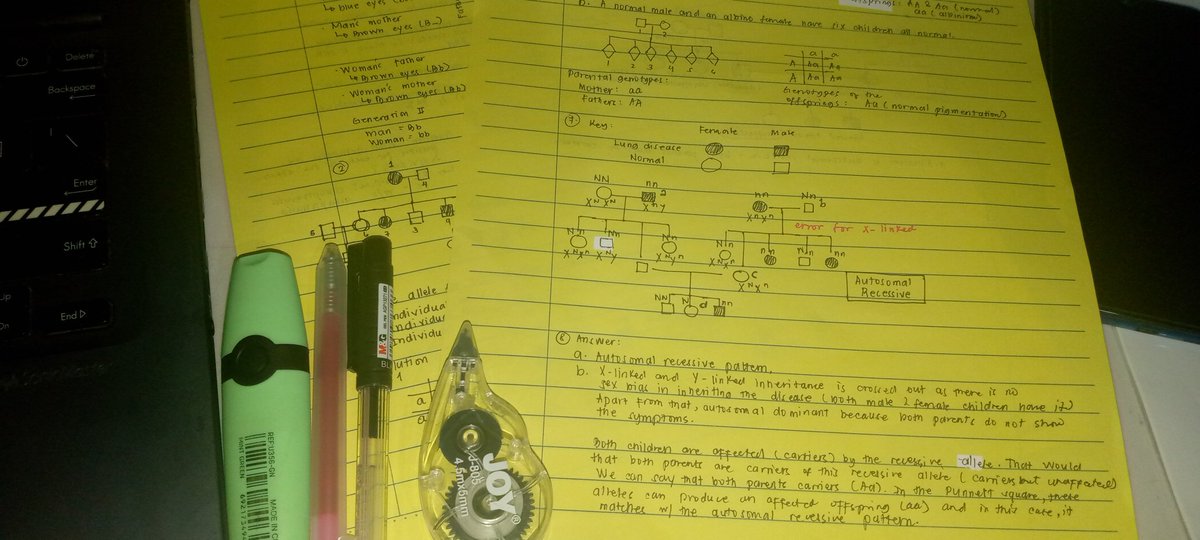 Delete
Backspace
Enter
Shift
End
↳ blue eyes
· Man's mother
↳ Brown eyes (B_)
· Woman's father
↳ Brown eyes (Bb)
· Woman's mother
↳ Brown eyes (Bb)
Generation II
man = Bb
woman = bb
②
1
4
5
3
allele
Individua
Individu
lution
a
offsprings: AA & Aa (normal)
aa (albinism)
b. A normal male and an albino female have six children all normal.
1 2
1 2 3 4 5 6
a a
A Aa Aa
A Aa Aa
Parental genotypes:
Mother: aa
Father: AA
Genotypes of the
offsprings: Aa (normal pigmentation)
⑦ Key:
Female Male
Lung disease
Normal
NN nn nn Nn
a b
XᴺXᴺ XⁿY XⁿXⁿ
error for X-linked
Nn Nn Nn Nn nn Nn nn
XᴺXⁿ XᴺY XᴺXⁿ
C
XᴺXⁿ
Autosomal
Recessive
NN N d nn
⑧ Answer:
a. Autosomal recessive pattern.
b. X-linked and Y-linked Inheritance is crossed out as there is no
sex bias in inheriting the disease (both male & female children have it)
Apart from that, autosomal dominant because both parents do not show
the symptoms.
Both children are affected (carriers) by the recessive allele. That would
that both parents are carriers of this recessive allele (carriers but unaffected)
We can say that both parents carriers (Aa). In the Punnett square, these
alleles can produce an affected offspring (aa) and in this case, it
matches w/ the autosomal recessive pattern.
REF:U356-GN
MINT GREEN
MADE IN C
M&G
JOY
J-808
4.5mmx6m